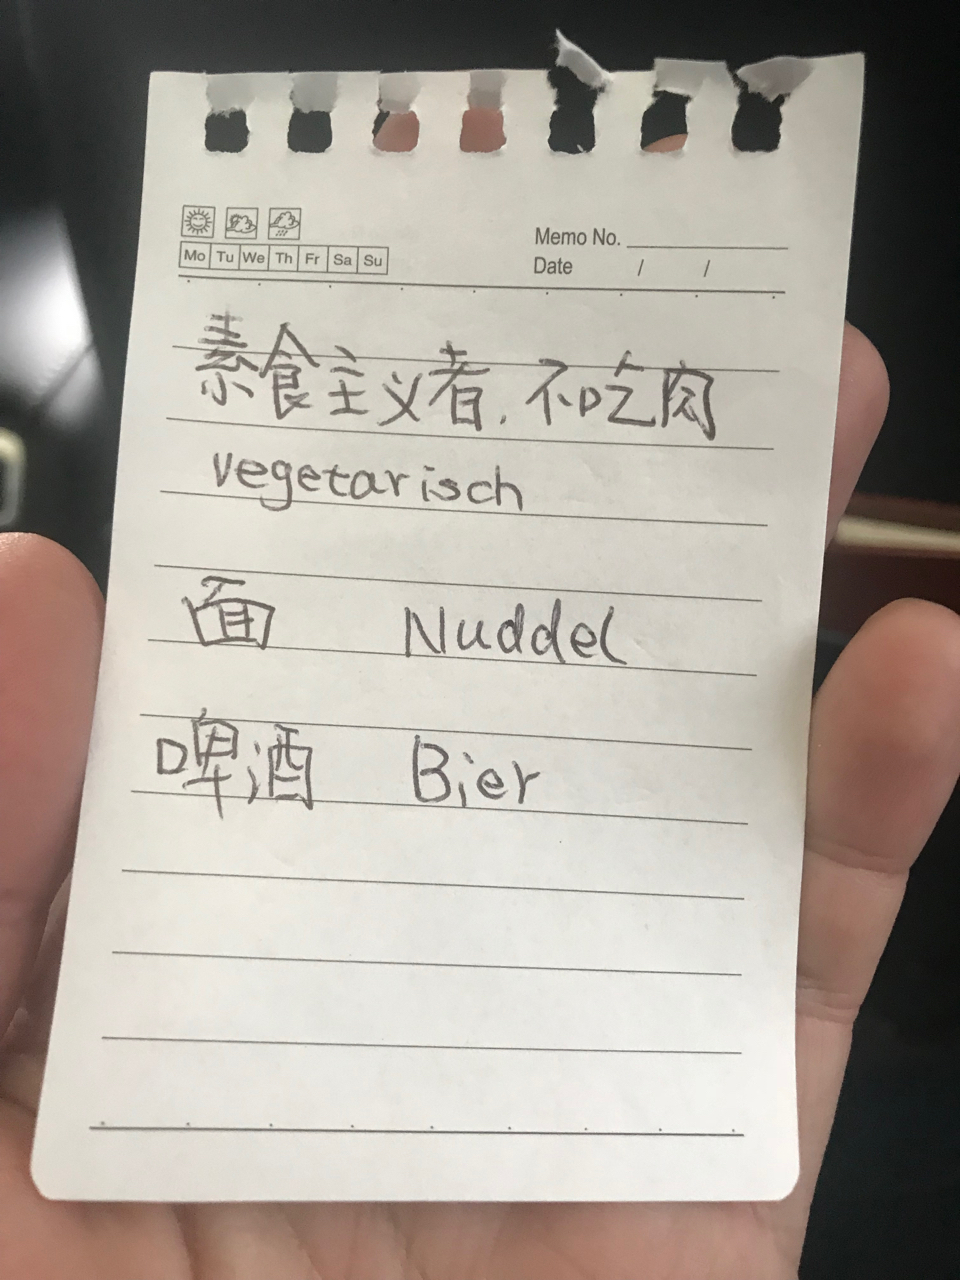 Memo No.
Mo Tu We Th Fr Sa Su
Date / /
素食主义者,不吃肉
vegetarisch
面 Nuddel
啤酒 Bier